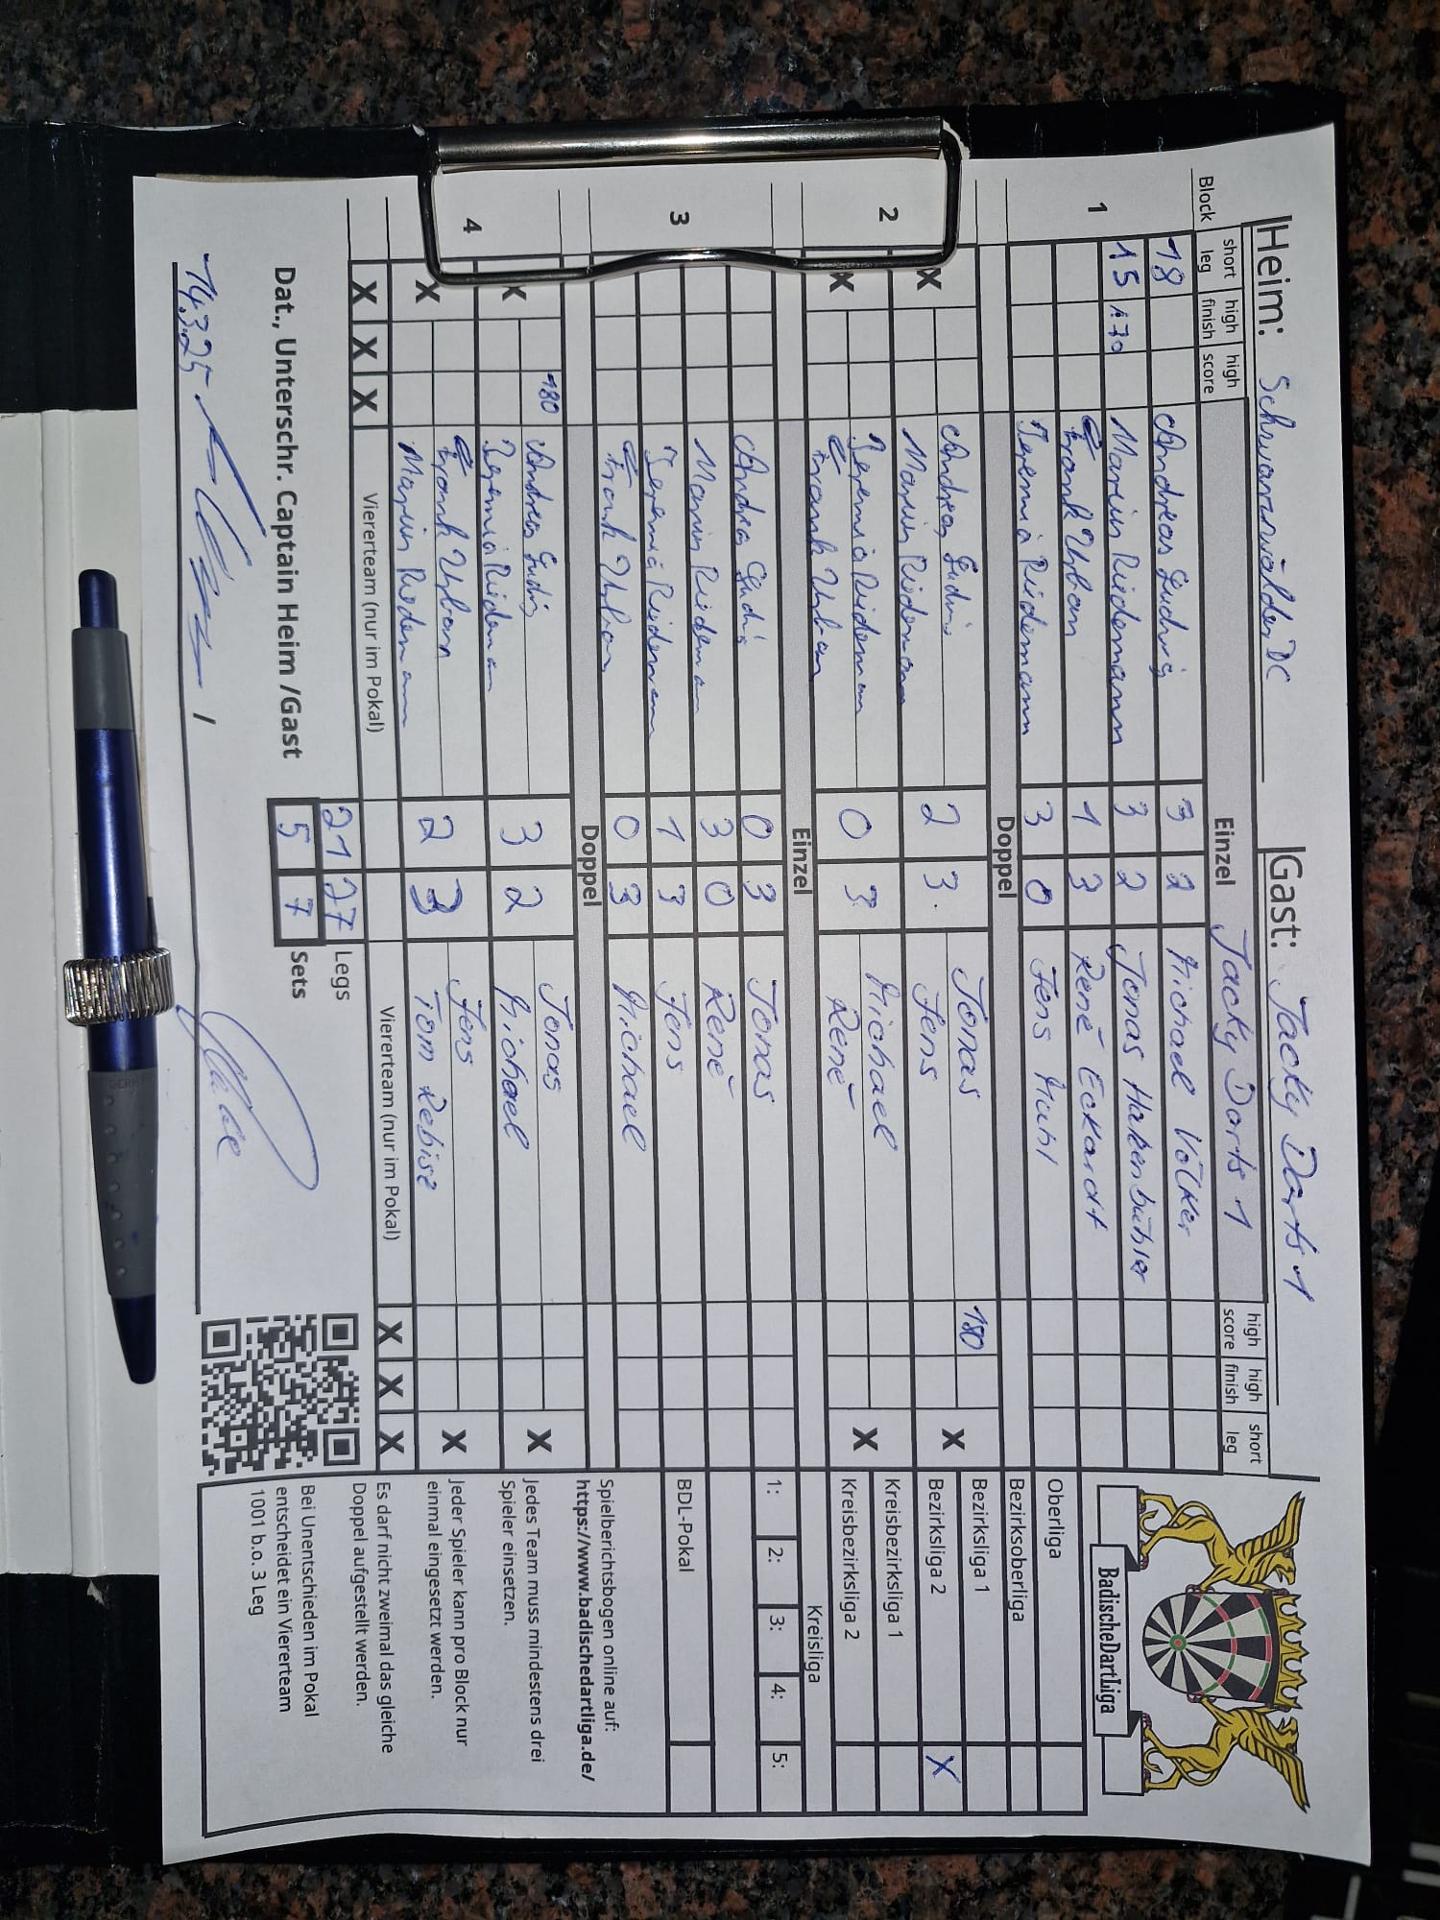 Heim: Schwarzwälder DC Gast: Jacky Darts 1
Block short leg high finish high score Einzel Jacky Darts 1 high score high finish short leg
1
18 Andreas Ludwig 3 2 Michael Völker
15 170 Marius Riedemann 3 2 Jonas Hakenbühler
Frank Urban 1 3 René Eckardt
Jeremia Riedemann 3 0 Jens Muhl
Doppel
2
X Andreas Ludwig 2 3 Jonas 180 X
Marius Riedemann Jens
X Jeremia Riedemann 0 3 Michael X
Frank Urban René
Einzel
3
Andreas Ludwig 0 3 Jonas
Marius Riedemann 3 0 René
Jeremia Riedemann 1 3 Jens
Frank Urban 0 3 Michael
Doppel
4
X 180 Andreas Ludwig 3 2 Jonas X
Jeremia Riedemann Michael
X Frank Urban 2 3 Jens X
Marius Riedemann Tom Rebisz
X X X Viererteam (nur im Pokal) Viererteam (nur im Pokal) X X X
21 27 Legs
Dat., Unterschr. Captain Heim /Gast 5 7 Sets
14.3.25 /
BadischeDartLiga
Oberliga
Bezirksoberliga
Bezirksliga 1
Bezirksliga 2 X
Kreisbezirksliga 1
Kreisbezirksliga 2
Kreisliga
1: 2: 3: 4: 5:
BDL-Pokal
Spielberichtsbogen online auf:
https://www.badischedartliga.de/
Jedes Team muss mindestens drei
Spieler einsetzen.
Jeder Spieler kann pro Block nur
einmal eingesetzt werden.
Es darf nicht zweimal das gleiche
Doppel aufgestellt werden.
Bei Unentschieden im Pokal
entscheidet ein Viererteam
1001 b.o. 3 Leg